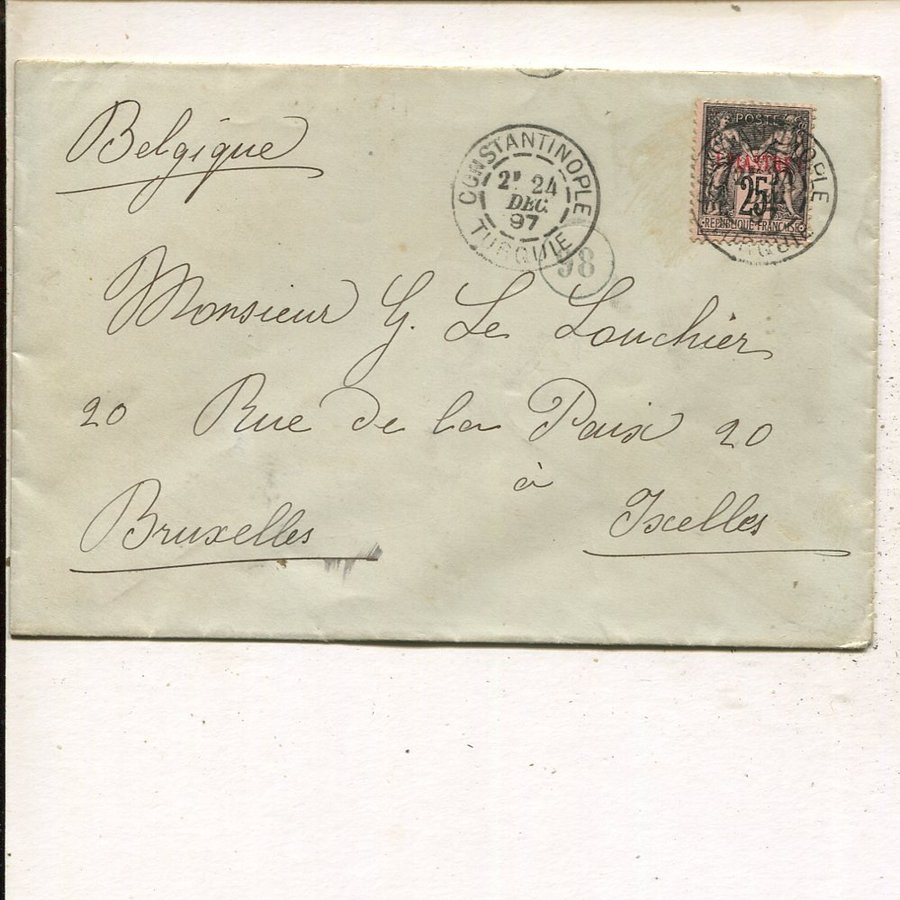 Belgique
CONSTANTINOPLE
2E 24
DEC.
97
TURQUIE
98
POSTES
1 PIASTRE 1
25
REPUBLIQUE FRANCAISE
Monsieur G. Le Louchier
20 Rue de la Paix 20
à
Bruxelles Ixelles